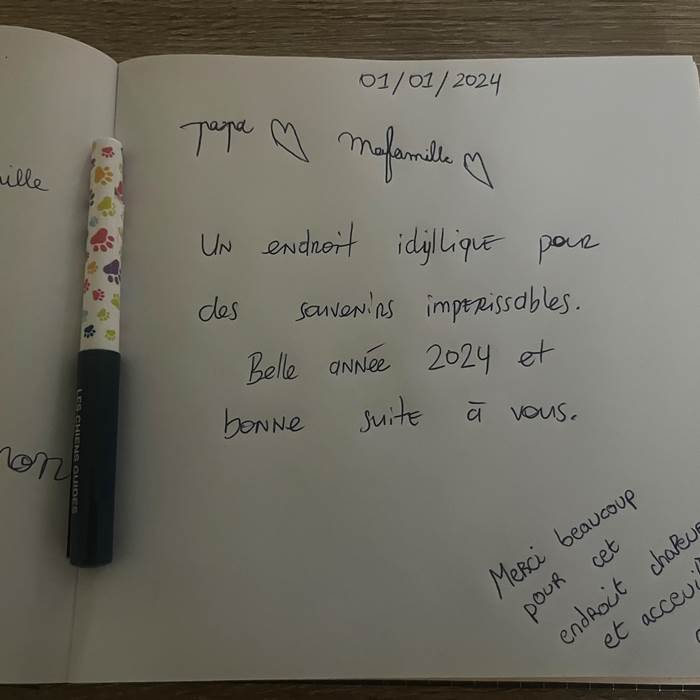 01/01/2024
papa ♡ Mafamille ♡
ille
Un endroit idyllique pour
des souvenirs imperissables.
Belle année 2024 et
bonne suite à vous.
LES CHIENS GUIDES
Merci beaucoup
pour cet
endroit
et